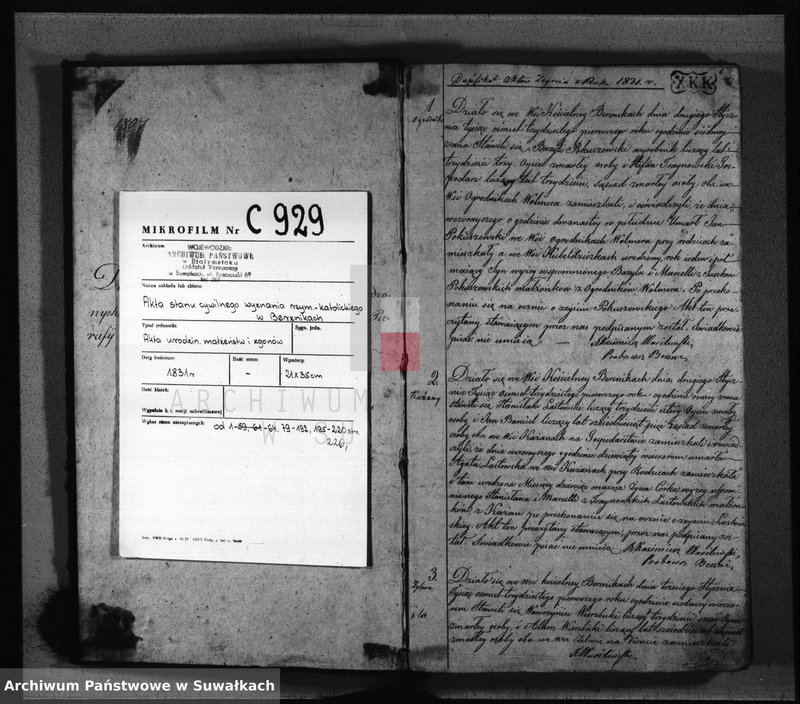 1897
MIKROFILM Nr C 929
Archiwum
WOJEWÓDZKIE
ARCHIWUM PAŃSTWOWE
w Białymstoku
Oddział Terenowy
w Suwałkach, ul. Kościuszki 69
Nazwa zakładu lub zbioru:
Akta stanu cywilnego wyznania rzym.-katolickiego
w Berżnikach
Tytuł jednostki
Sygn. jedn.
Akta urodzin, małżeństw i zgonów
Daty końcowe:
Ilość stron:
Wymiary:
1831 r
-
21x35cm
Ilość klatek:
Wypełnia k. i. stacji mikrofilmowej
Wykaz stron niezapisanych: od 1-59, 61-64, 79-192, 195-220 str.
226,
ARCHIWUM
Duplikat Aktów Zeyścia z Roku 1831. r.
XKK
1
Ogrodniki
Działo się we Wsi Kościelney Bereznikach dnia drugiego Stycz-
nia tysiąc ośmset trzydziestego pierwszego roku ogodzinie siódmey
zrana Stawili się Bazyli Pokuszewski wyrobnik liczący lat
trzydzieście trzy Oyciec zmarłey osoby i Stefan Trzynowski Gos-
podarz liczący lat trzydzieści, Sąsiad zmarłey osoby oba we
Wsi Ogrodnikach Wolmera zamieszkali, i oświadczyli, że dnia
wczorayszego o godzinie dwunastey w południe Umarł Jan
Pokuszewski we Wsi Ogrodnikach Wolmera przy rodzicach za-
mieszkały a we Wsi urodzony rok ieden i pół
maiący Syn wyżey wspomnionego Bazyla i Marcelli z
Pokuszewskich małżonków z Ogrodników Wolmera. Po przeko-
naniu się na ocznie o zeyściu Pokuszewskiego Akt ten prze-
czytany stawaiącym przez nas podpisanym został. Świadkowie
pisać nie umieią
X Kazimierz Wasilewski,
Proboszcz Berzn:
2.
Karany
Działo się we Wsi Kościelney Bereznikach dnia drugiego Stycz-
nia tysiąc ośmset trzydziestego pierwszego roku ogodzinie ósmey zrana
stawili się Stanisław Lastowski liczący trzydzieści cztery Oyciec zmarłey
osoby i Jan Daniel liczący lat Sąsiad zmarłey
osoby oba we Wsi Karanach na Gospodarstwie zamieszkali i oświad-
czyli, że dnia wczorayszego ogodzinie dziewiątey wieczorem umarła
Agata Lastowska we wsi Karanach przy Rodzicach zamieszkała
i tam urodzona Miesięcy dziewięć maiąca życia Córka wyżey wspom-
nionego Stanisława i Marcelli z Trzynowskich Lastowskich małżon-
ków z Karan po przekonaniu się na ocznie o zeyściu Lastow-
skiey. Akt ten przeczytany stawaiącym, przez nas podpisany zos-
tał. Świadkowie pisać nie umieią X Kazimierz Wasilewski,
Proboszcz Berzn:
3.
Działo się we wsi kościelney Bereznikach dnia trzeciego Stycznia
tysiąc ośmset trzydziestego pierwszego roku ogodzinie siódmey wieczo-
rem Stawili się Wawrzyniec Wierzbicki liczący trzydzieści ośm Oyciec
zmarłey osoby, i Adam Wierzbicki liczący lat sześćdziesiąt Sąsiad
zmarłey osoby oba we wsi zamieszkali
X Wasilewski
Archiwum Państwowe w Suwałkach